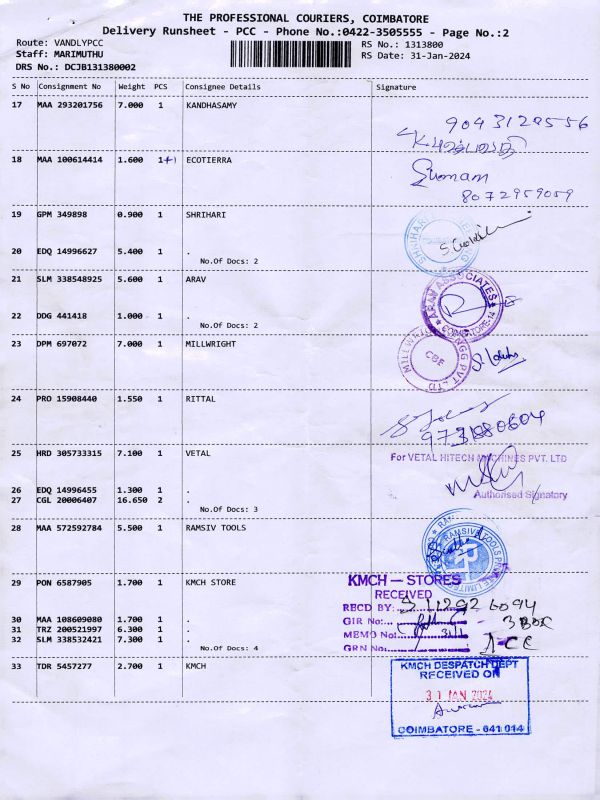 THE PROFESSIONAL COURIERS, COIMBATORE
Delivery Runsheet - PCC - Phone No.:0422-3505555 - Page No.:2
Route: VANDLYPCC
Staff: MARIMUTHU
DRS No.: DCJB131380002
RS No.: 1313800
RS Date: 31-Jan-2024
S No Consignment No Weight PCS Consignee Details Signature
17 MAA 293201756 7.000 1 KANDHASAMY
9043129556
18 MAA 100614414 1.600 1+1 ECOTIERRA
Sumam
8072959059
19 GPM 349898 0.900 1 SHRIHARI
20 EDQ 14996627 5.400 1 .
No.Of Docs: 2
21 SLM 338548925 5.600 1 ARAV
ARAV ASSOCIATES
COIMBATORE-14
22 DDG 441418 1.000 1 .
No.Of Docs: 2
23 DPM 697072 7.000 1 MILLWRIGHT
MILLWRIGHT ENGG PVT LTD
CBE
24 PRO 15908440 1.550 1 RITTAL
9731880604
25 HRD 305733315 7.100 1 VETAL
For VETAL HITECH MACHINES PVT. LTD
Authorised Signatory
26 EDQ 14996455 1.300 1 .
27 CGL 20006407 16.650 2 .
No.Of Docs: 3
28 MAA 572592784 5.500 1 RAMSIV TOOLS
29 PON 6587905 1.700 1 KMCH STORE
KMCH — STORES
RECEIVED
RECD BY:
GIR No:
3 BOX
MEMO No: 31/1
GRN No:
30 MAA 108609080 1.700 1 .
31 TRZ 200521997 6.300 1 .
32 SLM 338532421 7.300 1 .
No.Of Docs: 4
33 TDR 5457277 2.700 1 KMCH
KMCH DESPATCH DEPT
RECEIVED ON
31 JAN 2024
COIMBATORE - 641 014